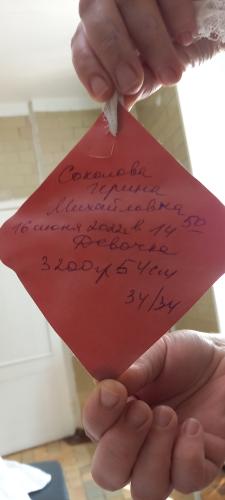 Соколова
Ирина
Михайловна
16 июня 2022 в 14 50
Девочка
3200гр 54 см
34/34